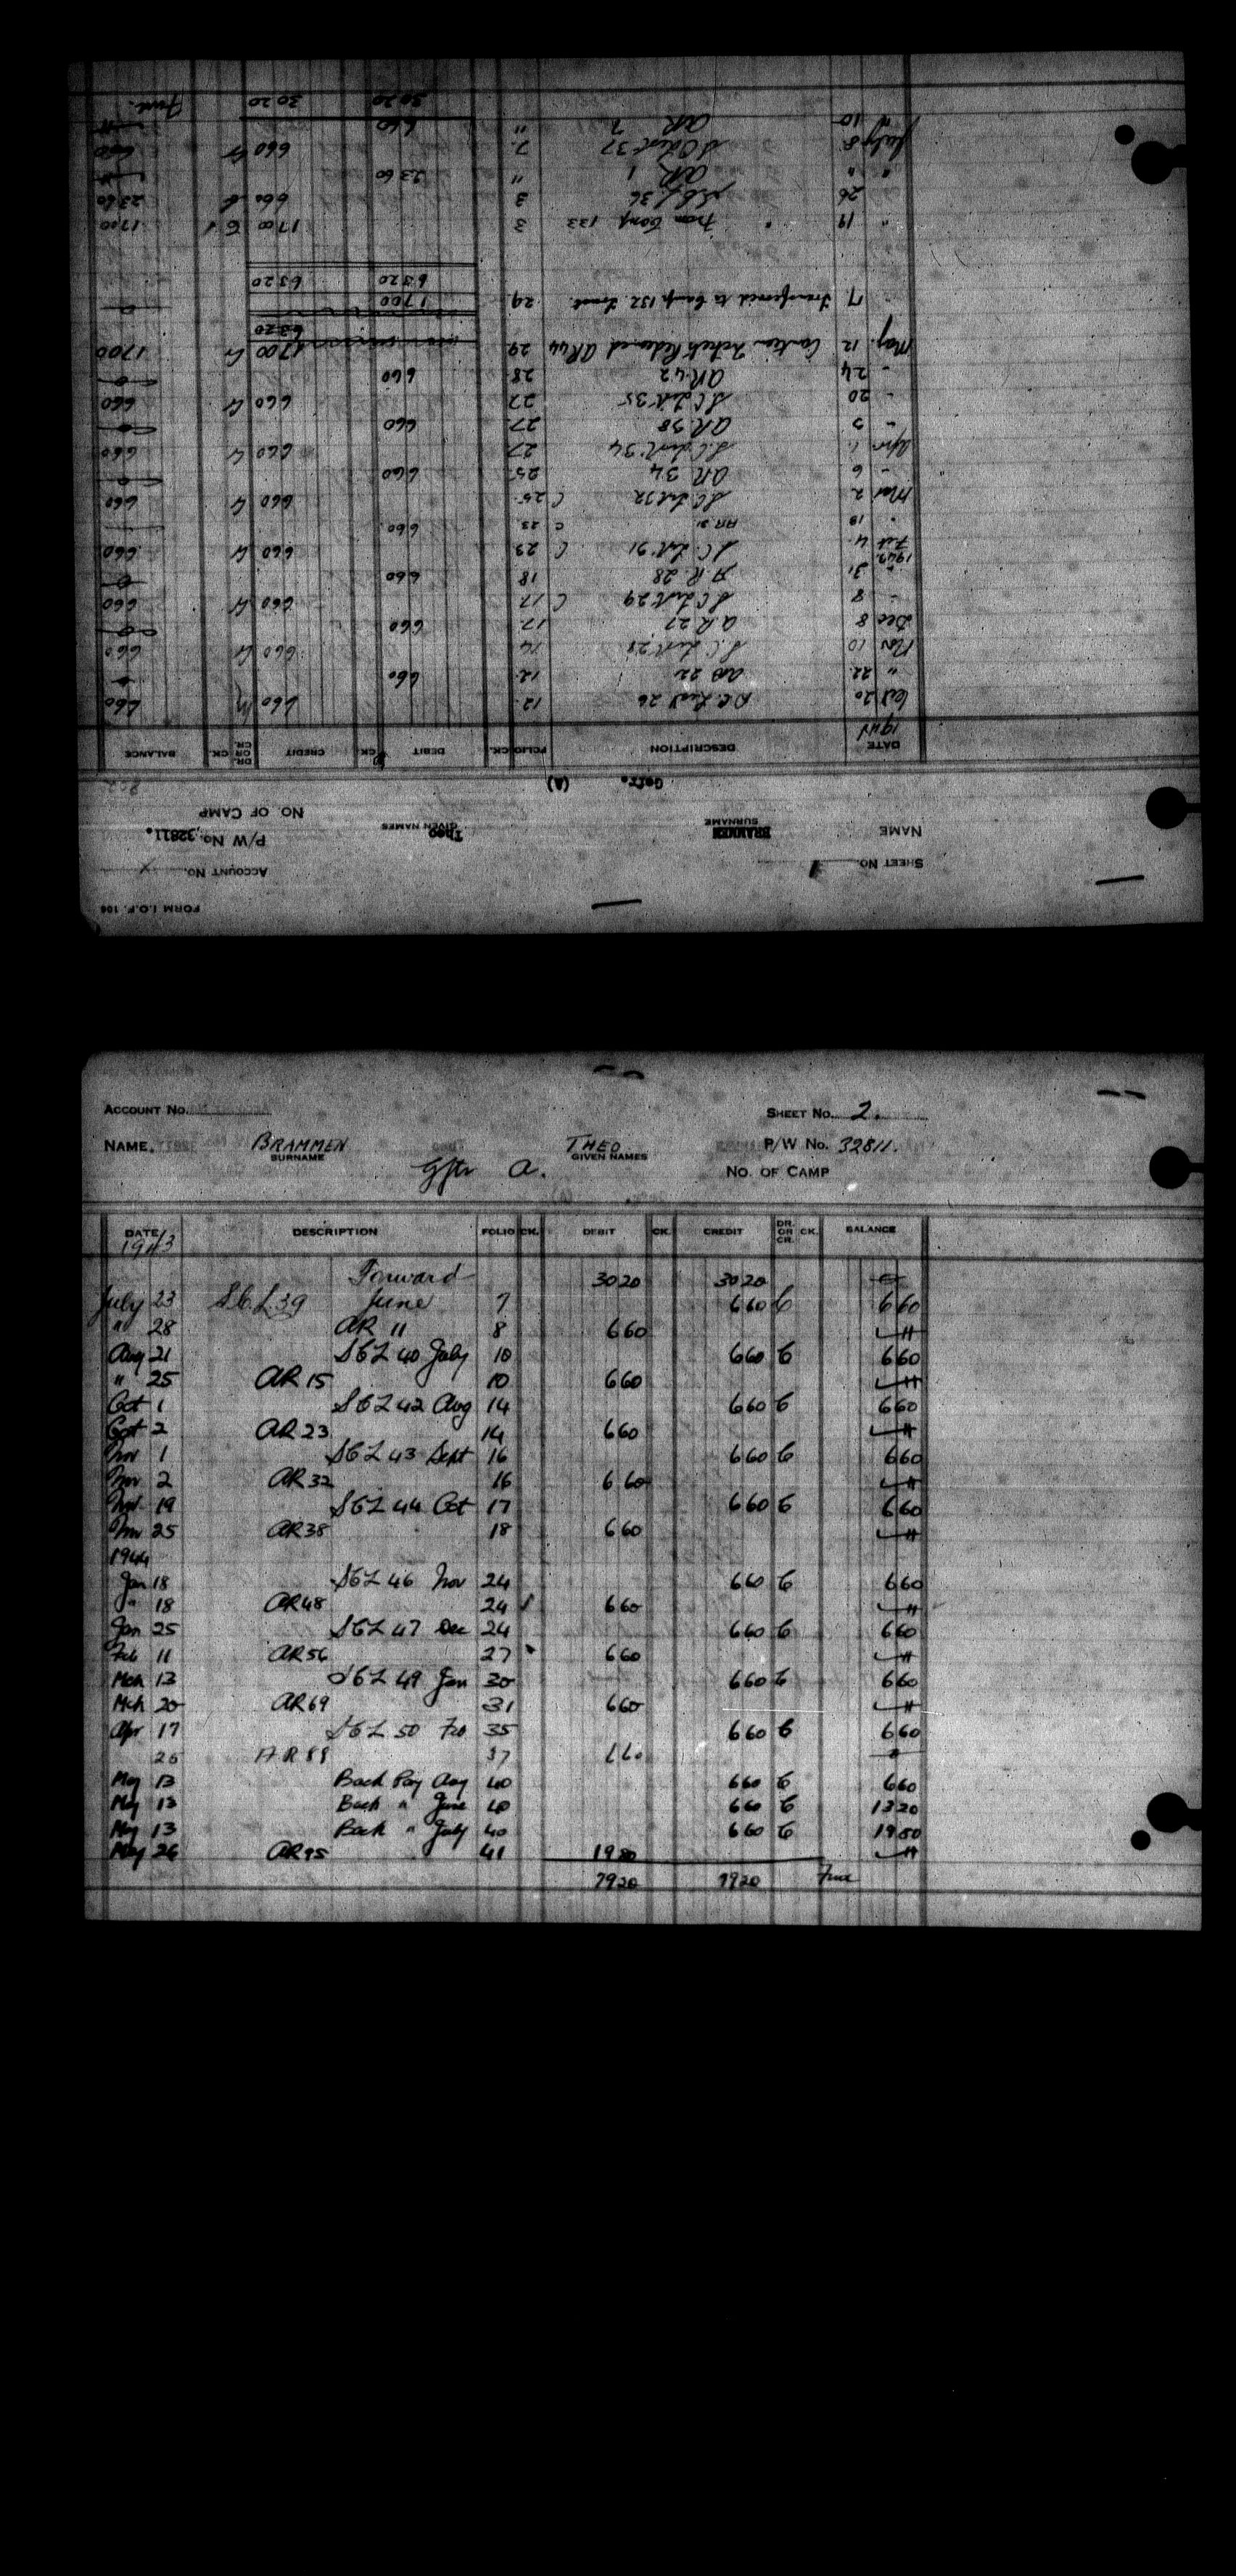 FORM I.O.F. 106
ACCOUNT No.
SHEET No. 1
P/W No. 32811.
NAME BRAMMEN Theo
SURNAME GIVEN NAMES
NO. OF CAMP
Gefr. (A)
DATE DESCRIPTION FOLIO CK. DEBIT CK. CREDIT DR. OR CR. CK. BALANCE
Oct 20 12 660 660
" 22 22 12 660
Nov 10 14 660 660
Dec 8 AR 27 17 660
" 8 S C List 29 C 17 660 Cr 660
" 31 A.R. 28 18 660
Feb 4 S.C. List 31 C 23 660 Cr 660
AR 31 C 23 660
Mar 2 S C List 32 C 25 660 Cr 660
" 6 AR 34 25 660
Apr 1 S.C. List 34 27 660 Cr 660
" 5 AR 38 27 660
" 20 S C List 35 27 660 Cr 660
" 24 AR 42 28 660
May 12 Canteen Tickets Redeemed AR 44 29 1700 Cr 1700
6320
" 17 Transferred to Camp 132 Trust 29 1700
6320 6320
" 19 From Camp 133 3 1700 1700
26 36 3 660 2360
" " AR 1 " 2360
July 8 S C List 37 7 660 Cr 660
" 10 AR 7 " 660
3020 3020
ACCOUNT No.
SHEET No. 2.
NAME. BRAMMEN THEO P/W No. 32811.
SURNAME GIVEN NAMES
Gftr A. NO. OF CAMP
DATE DESCRIPTION FOLIO CK. DEBIT CK. CREDIT DR. OR CR. CK. BALANCE
1943
Forward 3020 3020
July 23 S.C.L 39 June 7 660 C 660
" 28 AR 11 8 660
Aug 21 SCL 40 July 10 660 C 660
" 25 AR 15 10 660
Oct 1 SCL 42 Aug 14 660 C 660
Oct 2 AR 23 14 660
Nov 1 SCL 43 Sept 16 660 C 660
Nov 2 AR 32 16 660
Nov 19 SCL 44 Oct 17 660 C 660
Nov 25 AR 38 18 660
1944
Jan 18 SCL 46 Nov 24 660 C 660
" 18 AR 48 24 660
Jan 25 SCL 47 Dec 24 660 C 660
Feb 11 AR 56 27 660
Mch 13 SCL 49 Jan 30 660 C 660
Mch 20 AR 69 31 660
Apr 17 SCL 50 Feb 35 660 C 660
AR 37 660
May 13 Back Pay Aug 40 660 C 660
May 13 Back " June 40 660 C 1320
May 13 Back " July 40 660 C 1980
May 26 AR 95 41 1980
7920 7920